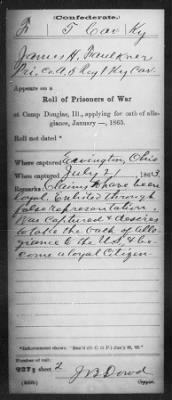 (Confederate.)
F 7 Cav Ky
James H. Faulkner
Pri, Co. A, 8 Reg't Ky Cav.
Appears on a
Roll of Prisoners of War
at Camp Douglas, Ill., applying for oath of alle-
giance, January —, 1865.
Roll not dated
Where captured Lexington, Ohio
When captured July 21, 1863
Remarks Claims to have been
loyal. Enlisted through
false representation,
was captured & desires
to take the oath of alle-
giance to the U.S. & be-
come a loyal Citizen
Number of roll:
227; sheet 2
J B Dowd
Copyist.